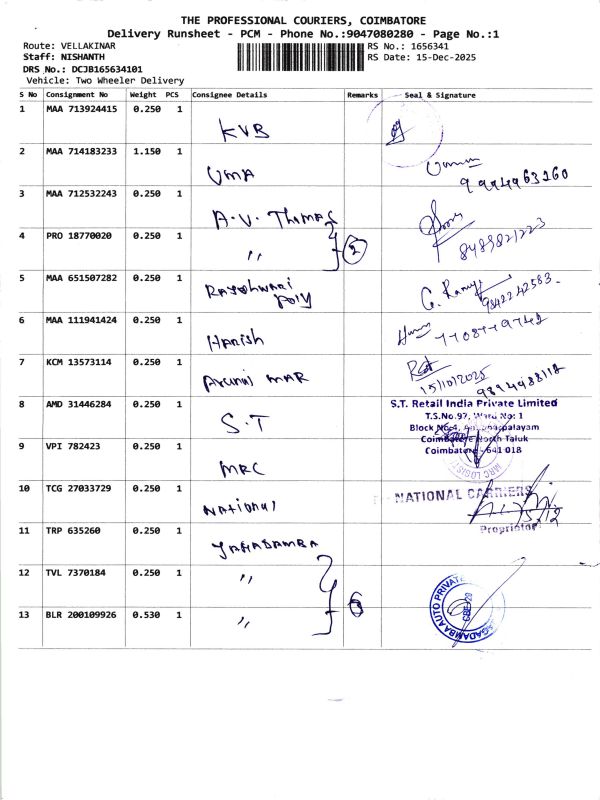 THE PROFESSIONAL COURIERS, COIMBATORE
Delivery Runsheet - PCM - Phone No.:9047080280 - Page No.:1
Route: VELLAKINAR
RS No.: 1656341
Staff: NISHANTH
RS Date: 15-Dec-2025
DRS No.: DCJB165634101
Vehicle: Two Wheeler Delivery
S No Consignment No Weight PCS Consignee Details Remarks Seal & Signature
1 MAA 713924415 0.250 1
KVB
2 MAA 714183233 1.150 1
UMA
3 MAA 712532243 0.250 1
A.V. Thomas
8489821223
4 PRO 18770020 0.250 1
" 2
5 MAA 651507282 0.250 1
Rajeshwari poly
9842242583
6 MAA 111941424 0.250 1
Harish
7 KCM 13573114 0.250 1
MAR
15/10/2025
8 AMD 31446284 0.250 1
S.T
S.T. Retail India Private Limited
T.S.No.97, Ward No: 1
Block No.4,
Coimbatore North Taluk
Coimbatore - 641 018
9 VPI 782423 0.250 1
MRC
MRC LOGISTI
10 TCG 27033729 0.250 1
National
NATIONAL CARRIERS
15/12
Proprietor
11 TRP 635260 0.250 1
JAGADAMBA
12 TVL 7370184 0.250 1
"
13 BLR 200109926 0.530 1
" 6
JAGADAMBA AUTO PRIVATE
CBE-20